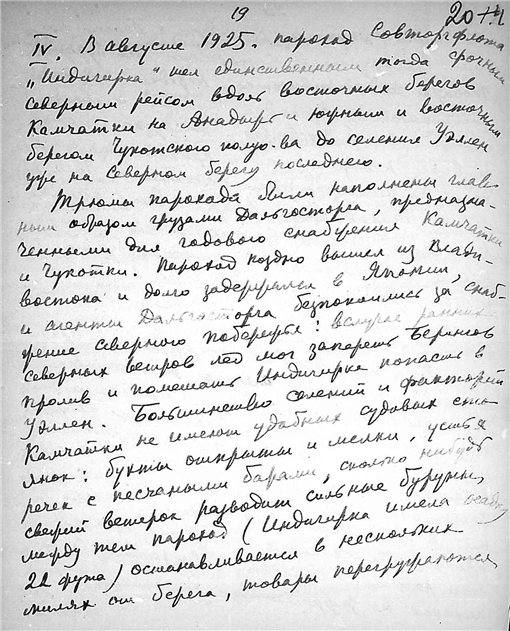 19
20
IV. В августе 1925. пароход Совторгфлота
„Индигирка" шел единственным тогда срочным
северным рейсом вдоль восточных берегов
Камчатки на Анадырь и южным и восточным
берегом Чукотского полуо-ва до селения Уэллен
уже на северном берегу последнего.
Трюмы парохода были наполнены глав-
ным образом грузами Дальгосторга, предназна-
ченными для годового снабжения Камчатки
и Чукотки. Пароход поздно вышел из Влади-
востока и долго задержался в Японии,
и агенты Дальгосторга безпокоились за снаб-
жение северного побережья: в случае ранних
северных ветров лед мог запереть Берингов
пролив и помешать Индигирке попасть в
Уэллен. Большинство селений и факторий
Камчатки не имеют удобных судовых сто-
янок: бухты открыты и мелки, устья
речек с песчаными барами, сколько нибудь
свежий ветерок разводит сильные буруны,
между тем пароход (Индигирка имела осадку
22 фута) останавливается в нескольких
милях от берега, товары перегружаются